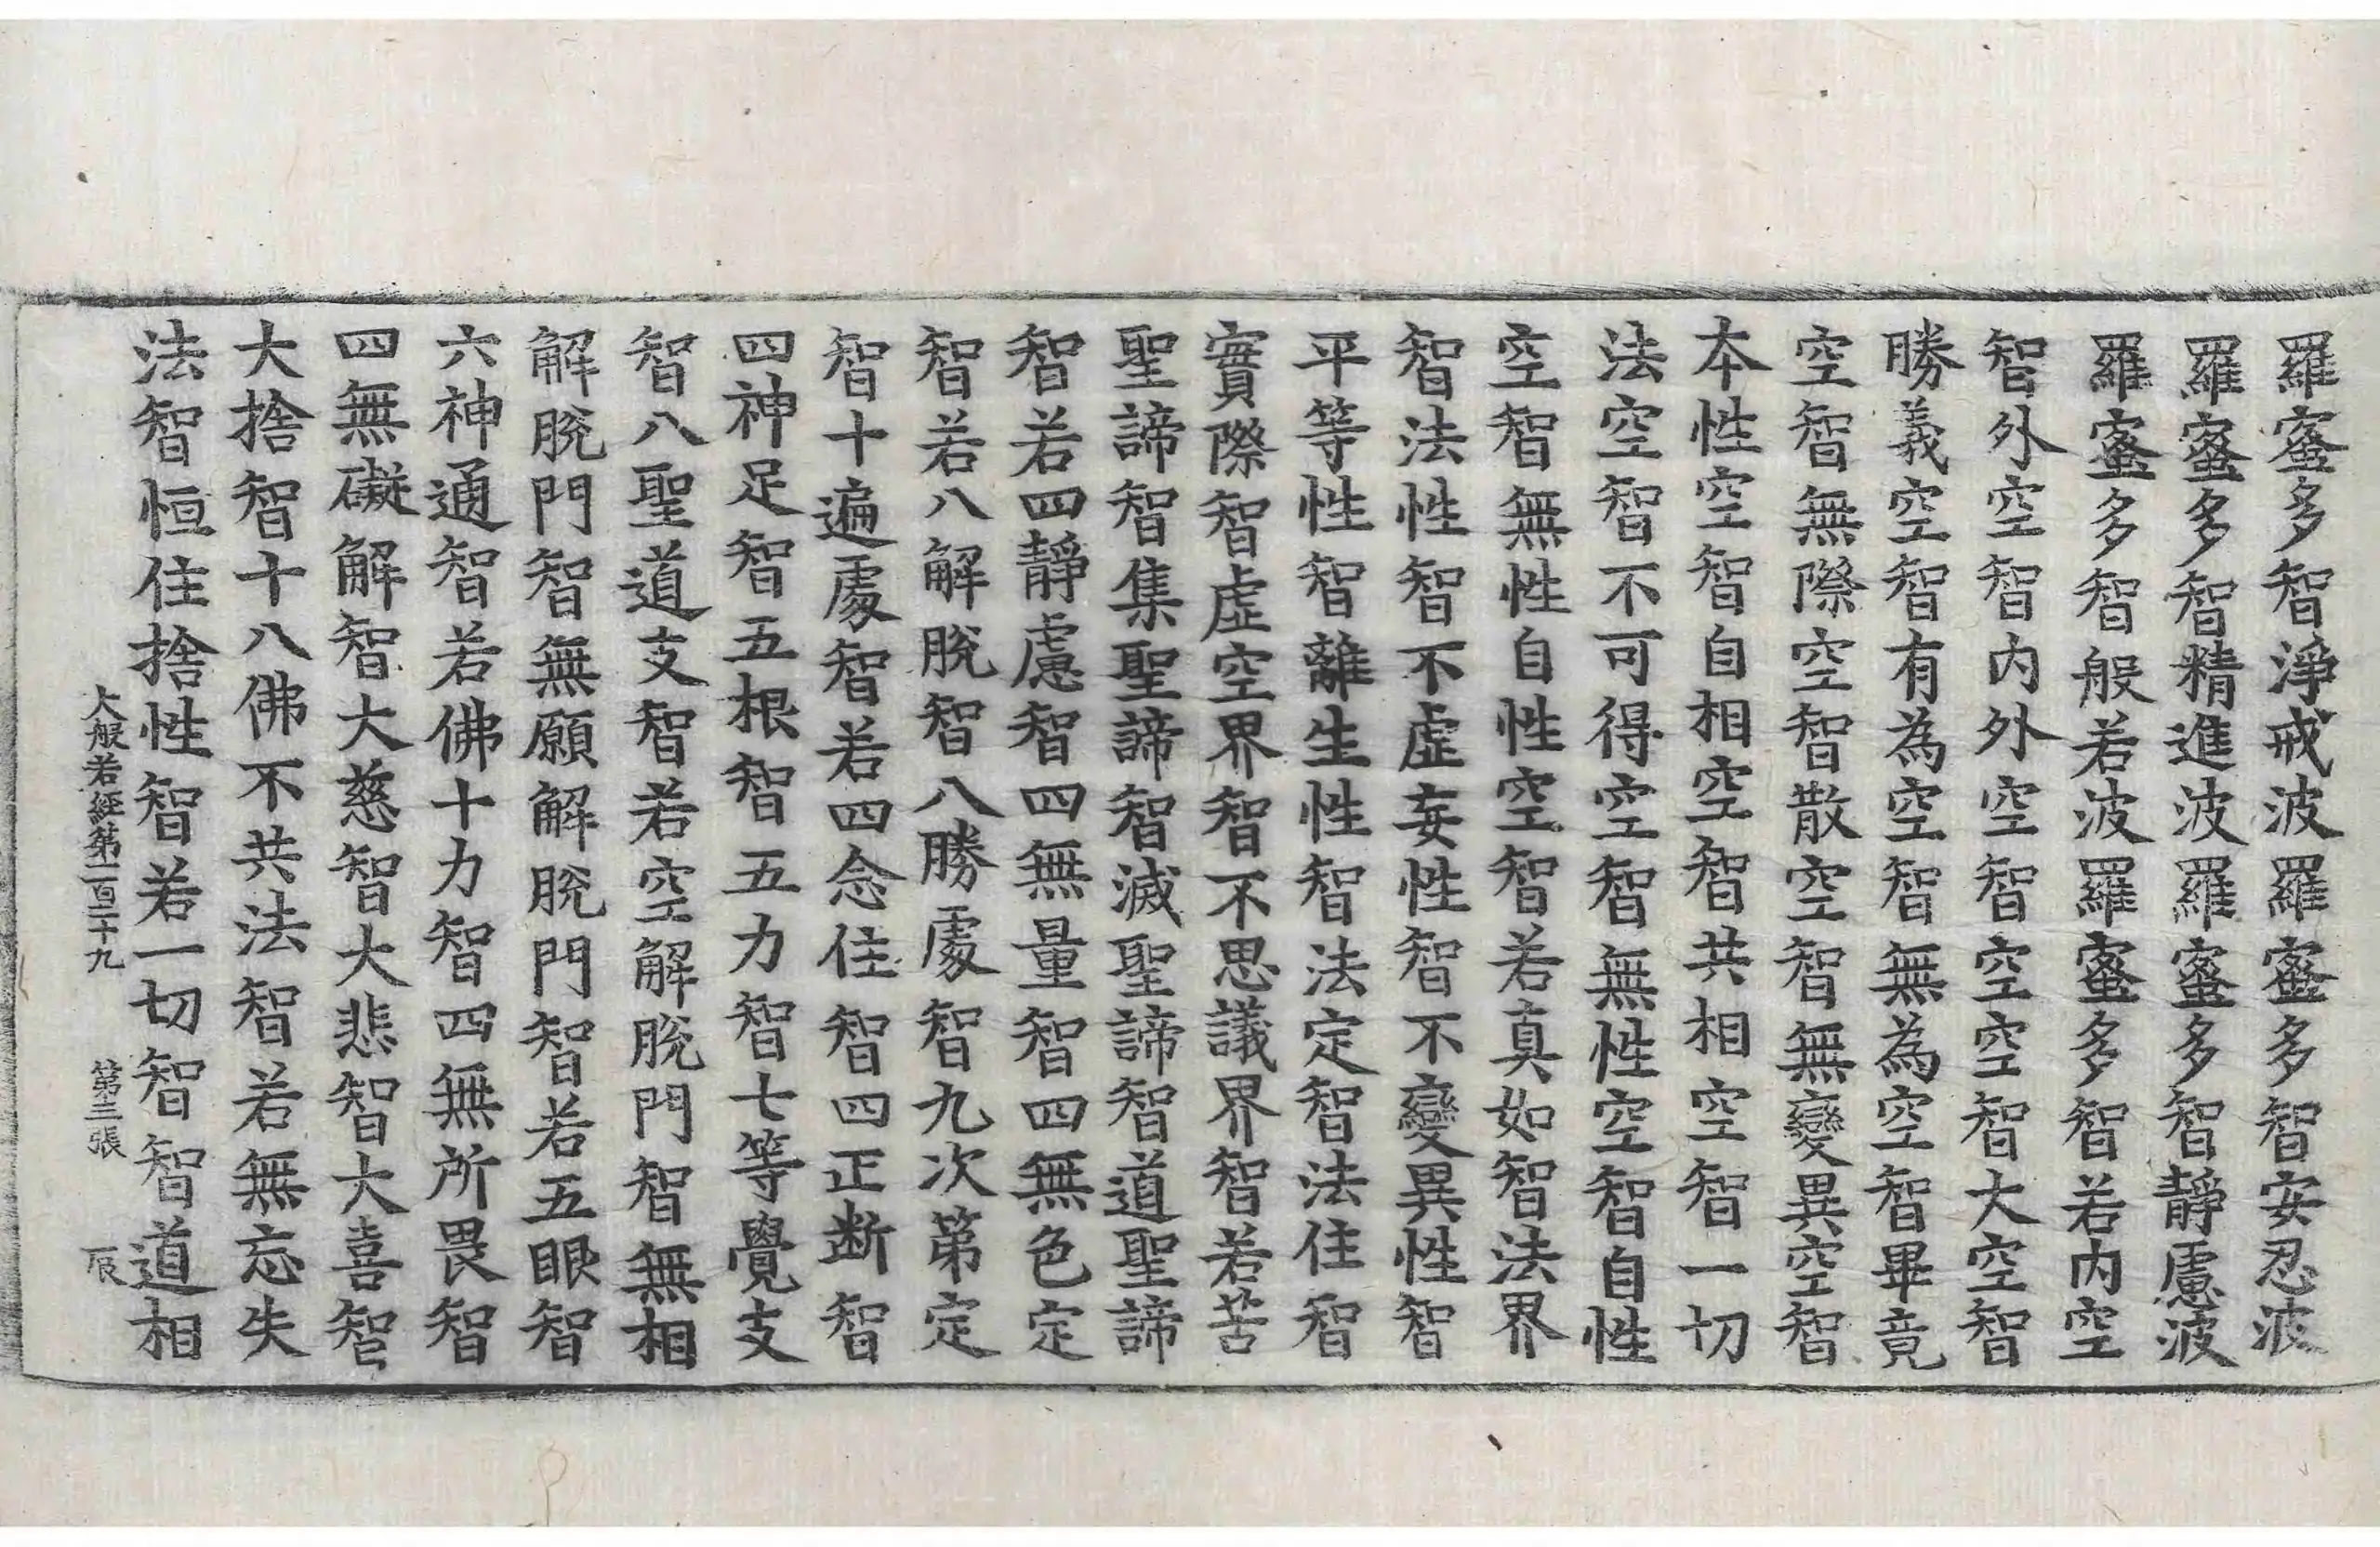 羅蜜多智淨戒波羅蜜多智安忍波
羅蜜多智精進波羅蜜多智靜慮波
羅蜜多智般若波羅蜜多智若內空
智外空智內外空智空空智大空智
勝義空智有為空智無為空智畢竟
空智無際空智散空智無變異空智
本性空智自相空智共相空智一切
法空智不可得空智無性空智自性
空智無性自性空智若真如智法界
智法性智不虛妄性智不變異性智
平等性智離生性智法定智法住智
實際智虛空界智不思議界智若苦
聖諦智集聖諦智滅聖諦智道聖諦
智若四靜慮智四無量智四無色定
智若八解脫智八勝處智九次第定
智十遍處智若四念住智四正斷智
四神足智五根智五力智七等覺支
智八聖道支智若空解脫門智無相
解脫門智無願解脫門智若五眼智
六神通智若佛十力智四無所畏智
四無礙解智大慈智大悲智大喜智
大捨智十八佛不共法智若無忘失
法智恒住捨性智若一切智智道相
大般若經第二百二十九 第三張 辰